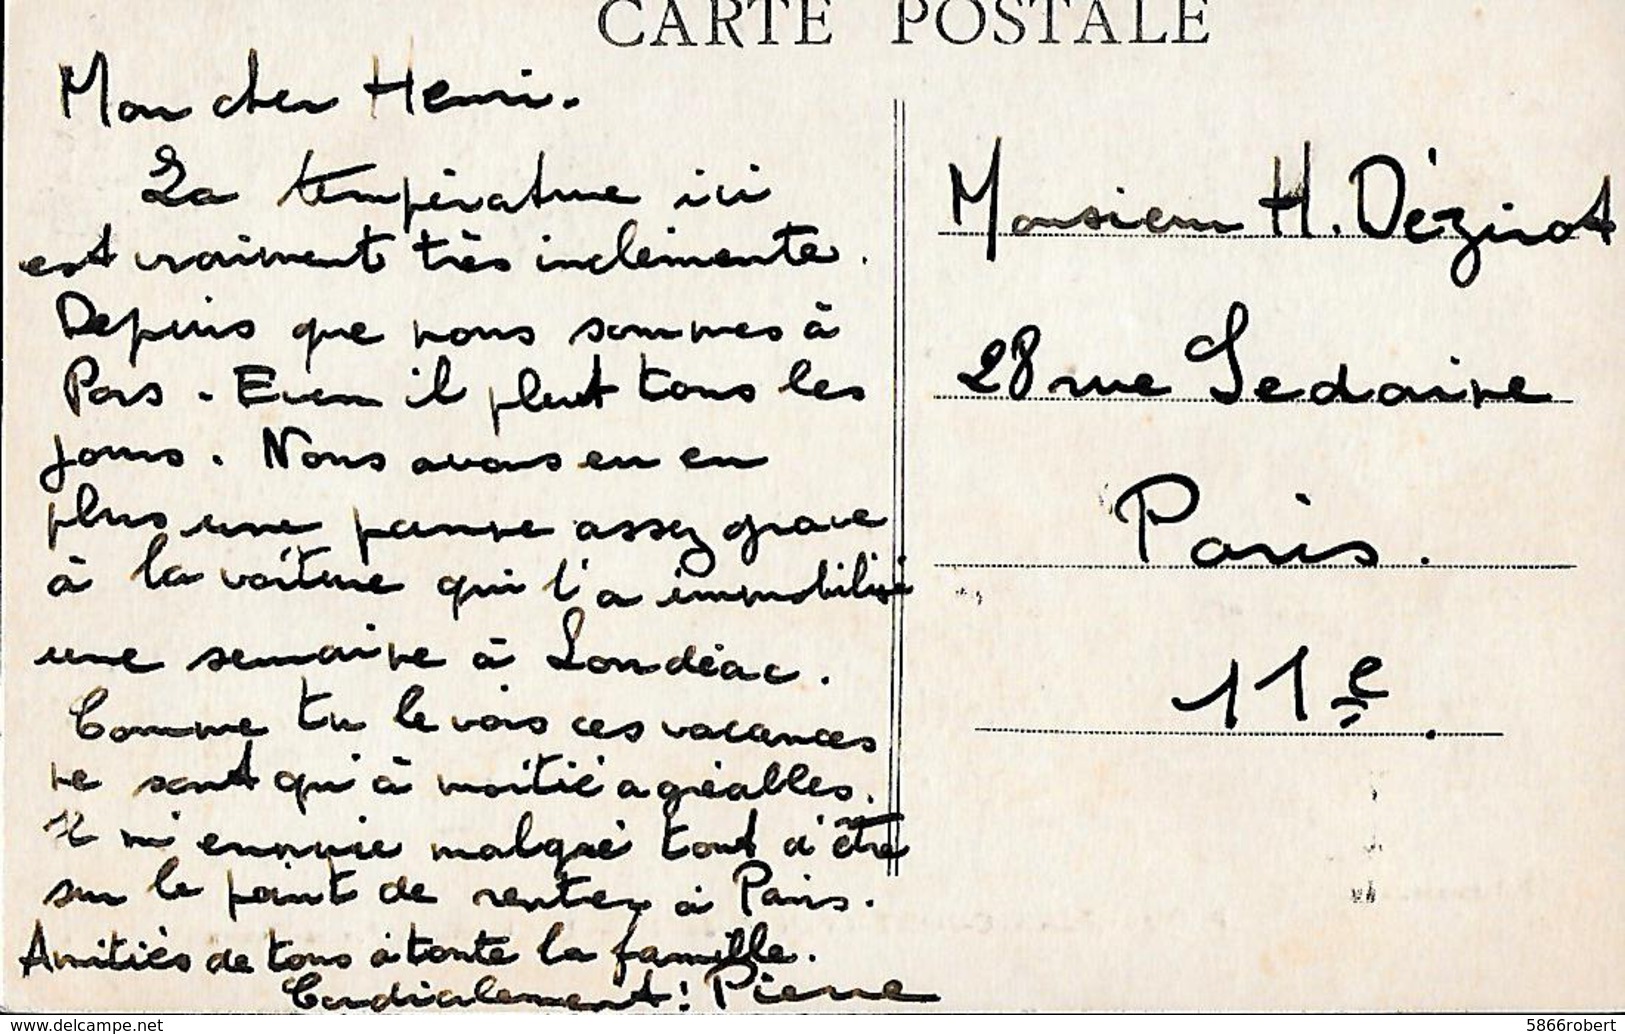 CARTE POSTALE
Mon cher Henri.
La température ici
est vraiment très inclémente.
Depuis que nous sommes à
Pors. Even il pleut tous les
jours. Nous avons eu en
plus une panne assez grave
à la voiture qui l'a immobilisé
une semaine à Loudéac.
Comme tu le vois ces vacances
ne sont qu'à moitié agréables.
Il m'ennuie malgré tout d'être
sur le point de rentrer à Paris.
Amitiés de tous à toute la famille.
Cordialement: Pierre
Monsieur H. Dézirot
28 rue Sedaine
Paris.
11e.
www.delcampe.net
5866robert